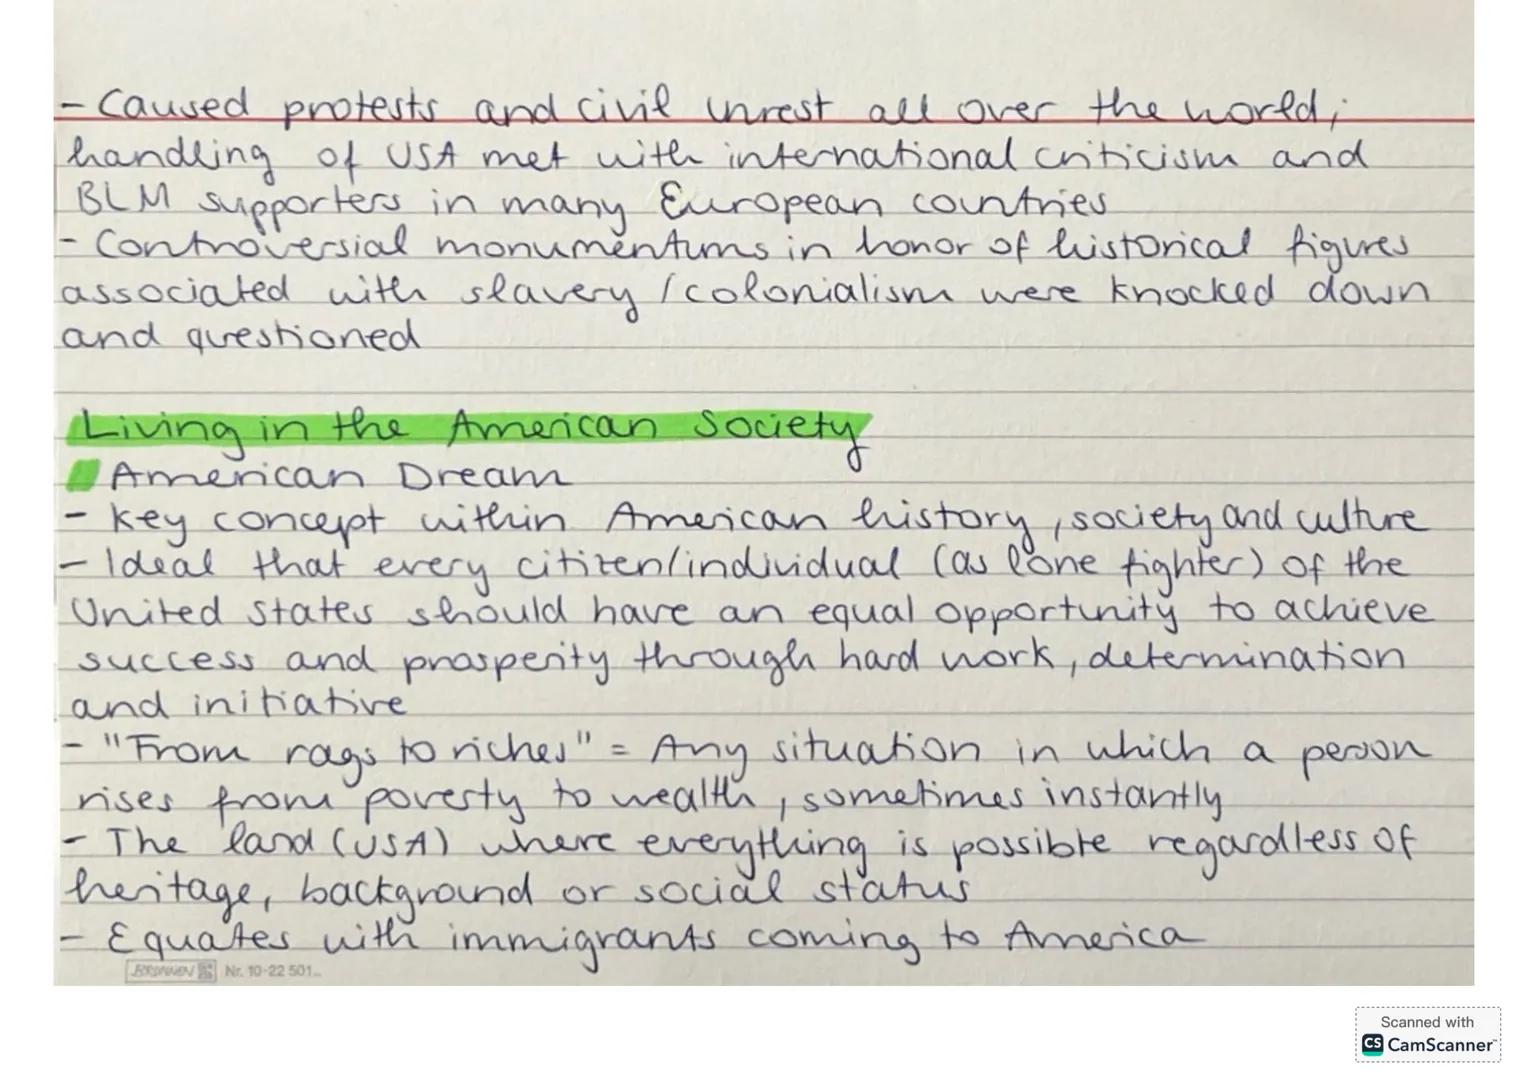 - Caused protests and civil unrest all over the world;
handling of USA met with international criticism and
BLM supporters in many European countries
- Controversial monumentums in honor of historical figures
associated with slavery / colonialism were knocked down
and questioned
Living in the American Society
American Dream
- Key concept within American history, society and culture
- Ideal that every citizen/individual (as lone fighter) of the
United States should have an equal opportunity to achieve
success and prosperity through hard work, determination
and initiative
- "From rags to riches" = Any situation in which a person
rises from poverty to wealth, sometimes instantly
- The land (USA) where everything is possible regardless of
heritage, background or social status
- Equates with immigrants coming to America
BRUNNEN Nr. 10-22 501..
Scanned with
CS CamScanner